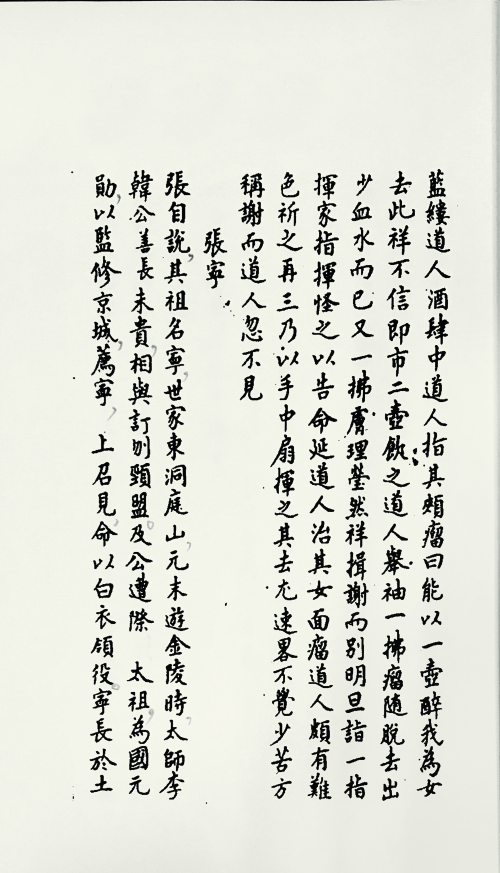 藍縷道人酒肆中道人指其頰瘤曰能以一壺醉我為女
去此祥不信即市二壺飲之道人舉袖一拂瘤随脫去出
少血水而已又一拂膚理瑩然祥揖謝而別明旦詣一指
揮家指揮怪之以告命延道人治其女面瘤道人頗有難
色祈之再三乃以手中扇揮之其去尤速畧不覺少苦方
稱謝而道人忽不見
張寧
張自說其祖名寧世家東洞庭山元末遊金陵時太師李
韓公善長未貴相與訂刎頸盟及公遭際 太祖為國元
勛以監修京城薦寧 上召見命以白衣領役寧長於土